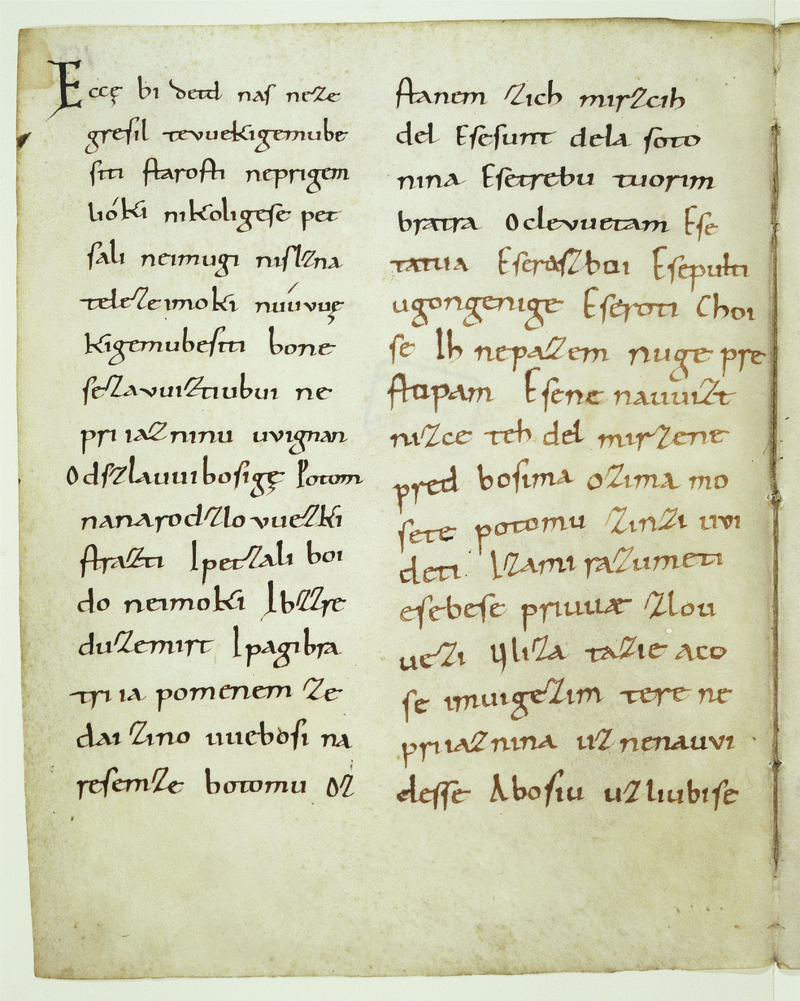 Eccę bi detd naſ neze
greſil tevuekigemube
ſiti ſtaroſti neprigem
lióki nikoligeſe pet
ſali neimugi niſlzna
teleſzeimoki nuúvuę
kigemubeſiti bone
ſezavuiztiubui ne
priiazninu uvignan
Odſzlauuibosigę Potom
nanarodzlovuezki
ſtrazti Ipetzali boi
do neimoki Ibzzre
duzemirt Ipagibra
triia pomenem ze
dai zino uuebòſi na
reſemze botomu oz
ſtanem zich mirzcih
del Eſeſunt dela ſoto
nina Eſetrebu tuorim
bratra Oclevuetam Eſe
tatua Eſeraſzboi Eſepulti
ugongenige Eſeroti Choi
ſe Ih nepazem nuge pre
ſtopam Eſene nauuizt
nizce teh del mirzene
pred boſima ozima mo
ſete potomu zinzi uvi
deti Izami razumeti
eſebeſe priuuæ zlou
uezi Yliza tazie aco
ſe imuigezim tere ne
priiaznina uz nenauvi
deſſe Aboſiu uzliubiſe